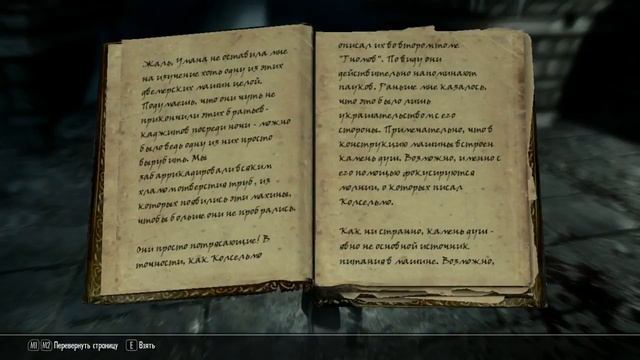 Жаль, Умана не оставила мне
на изучение хоть одну из этих
двемерских машин целой.
Подумаешь, что они чуть не
прикончили этих братьев-
каджитов посреди ночи - можно
было ведь одну из них просто
вырубить. Мы
забаррикадировали всяким
хламом отверстия труб, из
которых появились эти махины,
чтобы больше они не пробрались.
Они просто потрясающие! В
точности, как Колсельмо
описал их во втором томе
"Гномов". По виду они
действительно напоминают
пауков. Раньше мне казалось,
что это было лишь
украшательством с его
стороны. Примечательно, что в
конструкцию машины встроен
камень душ. Возможно, именно с
его помощью фокусируются
молнии, о которых писал
Колсельмо.
Как ни странно, камень душ -
овно не основной источник
питания в машине. Возможно,
M1 M2 Перевернуть страницу E Взять